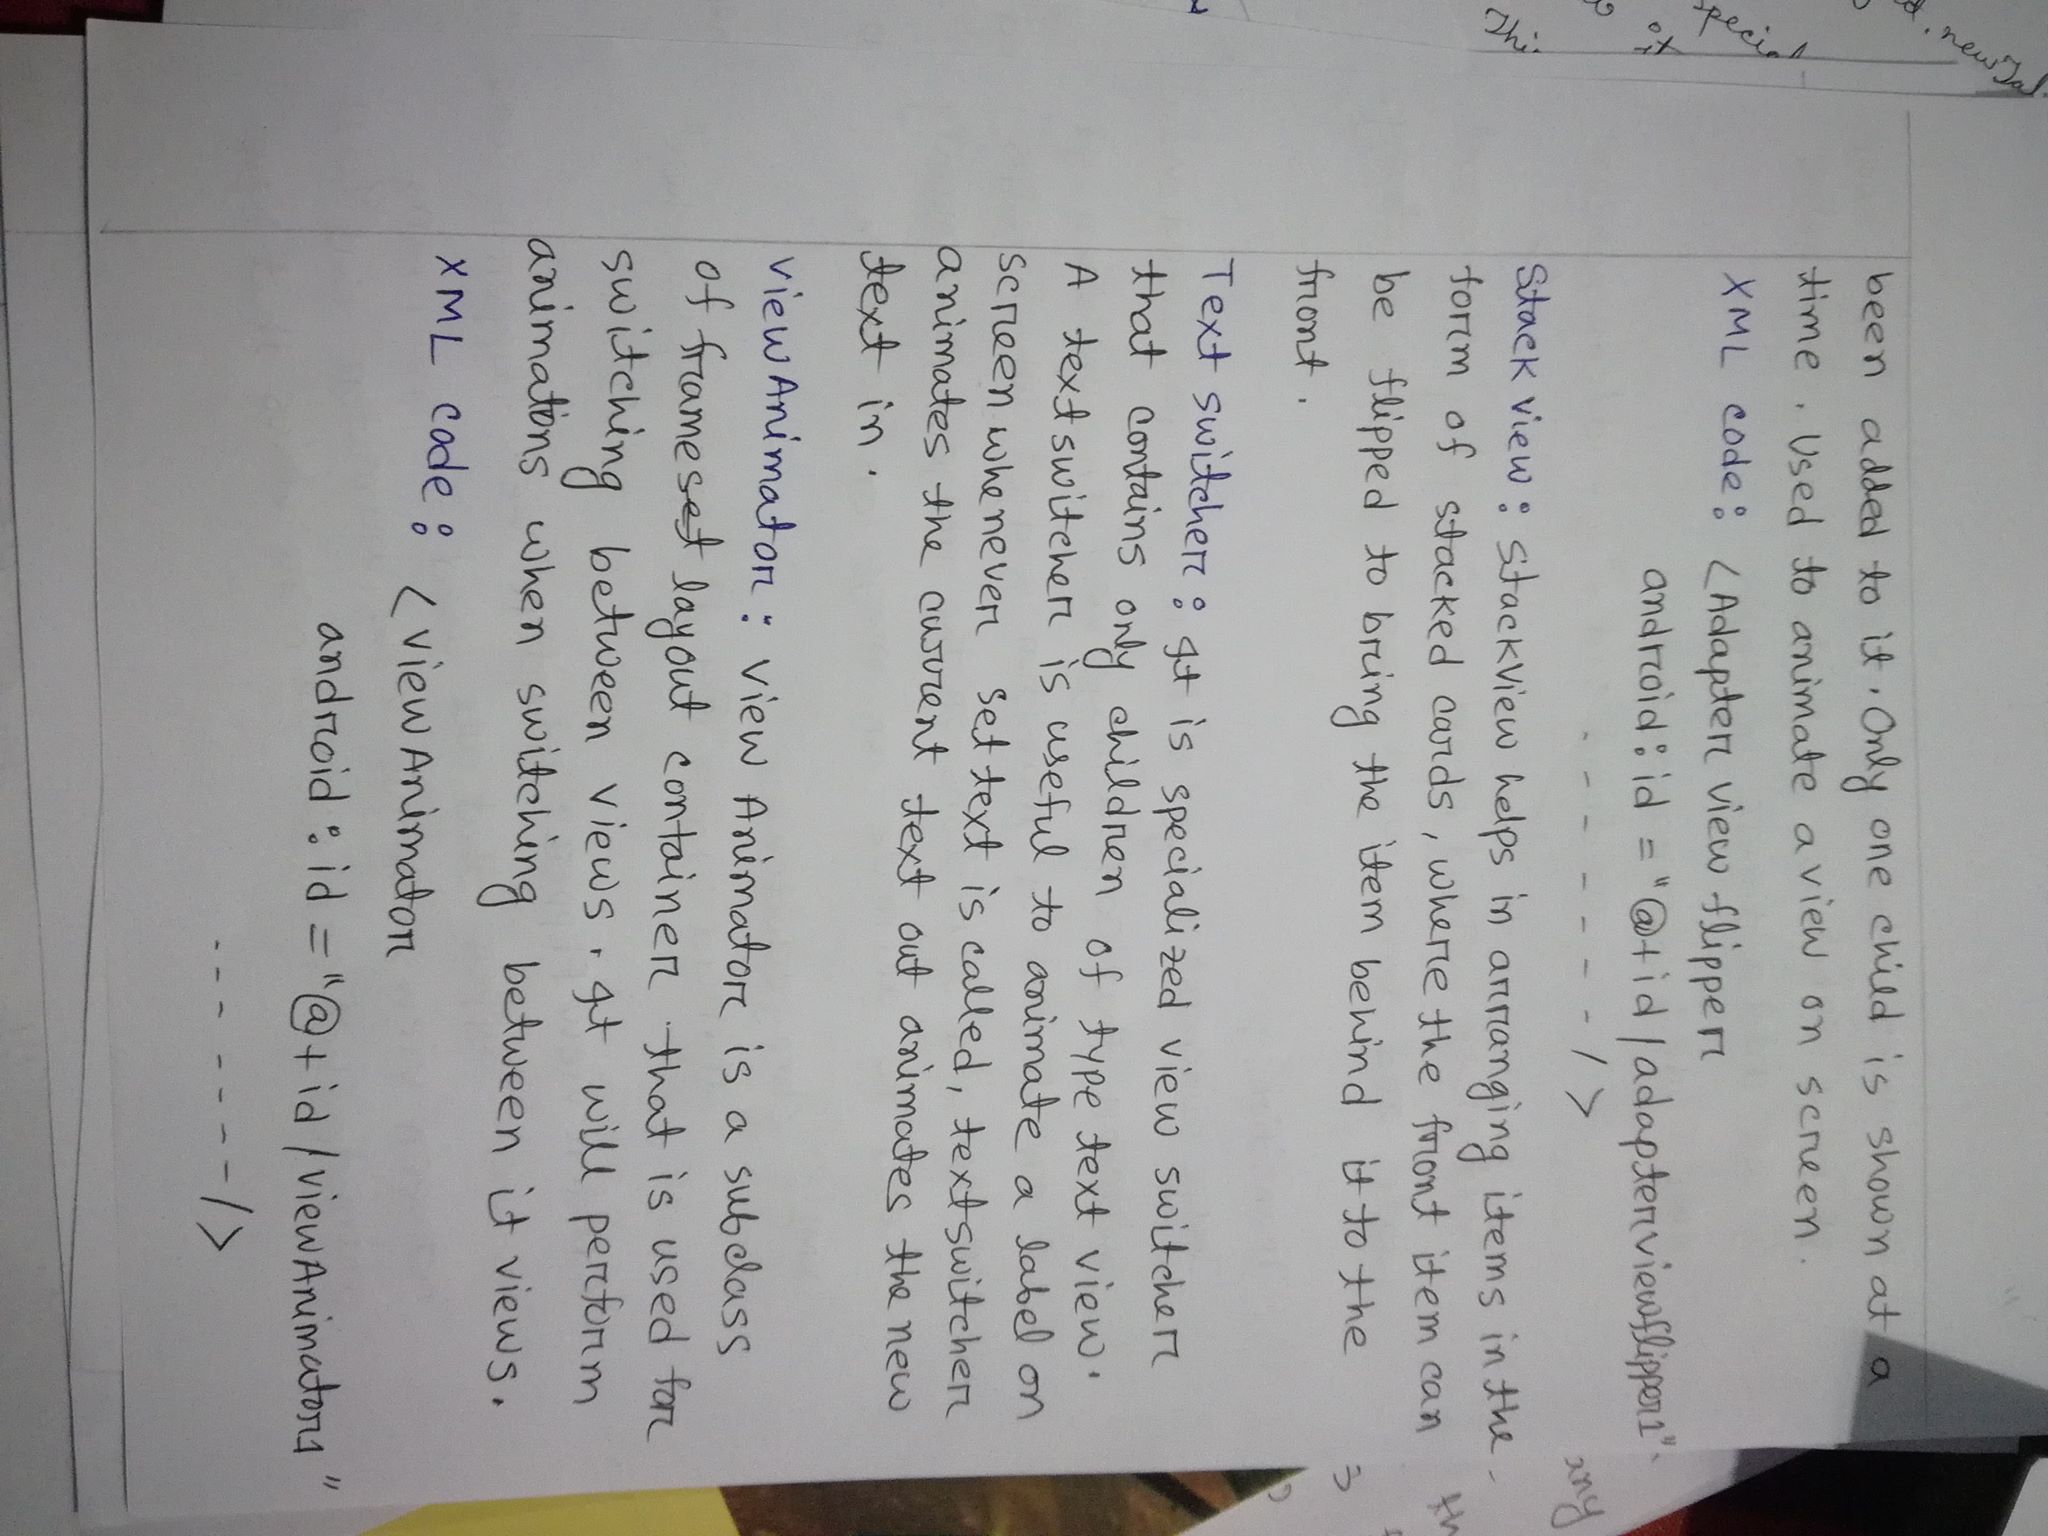 been added to it. Only one child is shown at a
time. Used to animate a view on screen.
XML code: <Adapter view flipper
android:id = "@+id/adapterviewflipper1".
- - - - - />
Stack view: stackview helps in arranging items in the
form of stacked cards, where the front item can
be flipped to bring the item behind it to the
front.
Text switcher: It is specialized view switcher
that contains only children of type text view.
A textswitcher is useful to animate a label on
screen whenever set text is called, textswitcher
animates the current text out animates the new
text in.
View Animator: View Animator is a subclass
of frameset layout container that is used for
switching between views. It will perform
animations when switching between it views.
XML code: <ViewAnimator
android:id = "@+id/viewAnimator1"
- - - - - - />
special
any